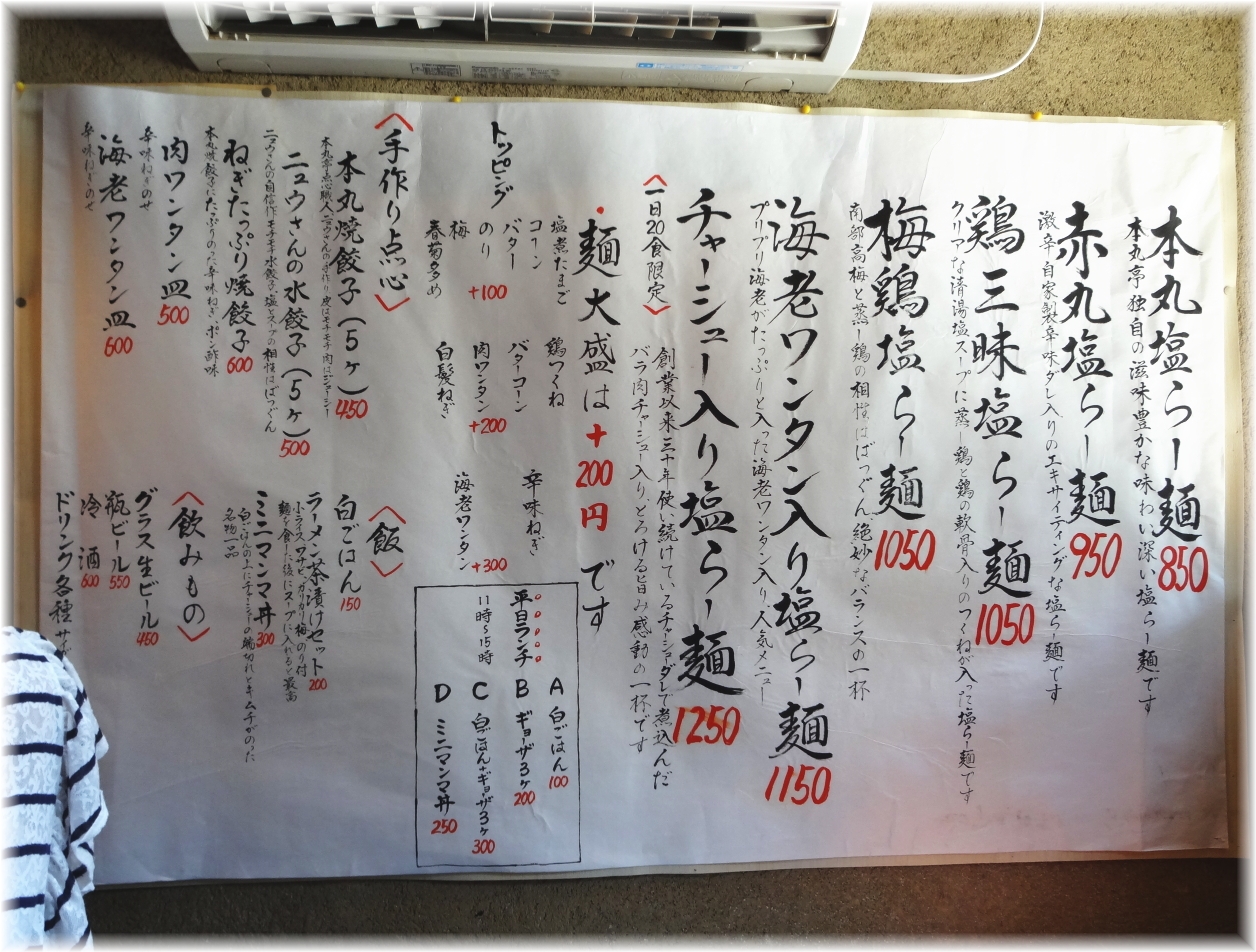 本丸塩らー麺 850
本丸亭独自の滋味豊かな味わい深い塩らー麺です
赤丸塩らー麺 950
激辛自家製辛味ダレ入りのエキサイティングな塩らー麺です
鶏三昧塩らー麺 1050
クリアな清湯塩スープに蒸し鶏と鶏の軟骨入りのつくねが入った塩らー麺です
梅鶏塩らー麺 1050
南部高梅と蒸し鶏の相性はばつぐん、絶妙なバランスの一杯
海老ワンタン入り塩らー麺 1150
プリプリ海老がたっぷりと入った海老ワンタン入り人気メニュー
チャーシュー入り塩らー麺 1250
〈一日20食限定〉
創業以来三十年使い続けているチャーシューダレで煮込んだ
バラ肉チャーシュー入り、とろける旨み感動の一杯です
・麺大盛は+200円です
トッピング
塩煮たまご
コーン
バター
のり
梅
春菊多め
+100
鶏つくね
バターコーン
肉ワンタン
白髪ねぎ
+200
辛味ねぎ
海老ワンタン
+300
平日ランチ
11時〜15時
A 白ごはん 100
B ギョーザ3ヶ 200
C 白ごはん+ギョーザ3ヶ 300
D ミニマンマ丼 250
〈手作り点心〉
本丸焼餃子(5ヶ) 450
本丸亭点心職人ニュウさんの手作り 皮はモチモチ肉はジューシー
ニュウさんの水餃子(5ヶ) 500
ニュウさんの自信作モチモチ水餃子、塩とスープの相性はばつぐん
ねぎたっぷり焼餃子 600
本丸焼餃子にたっぷりのった辛味ねぎ、ポン酢味
肉ワンタン皿 500
辛味ねぎのせ
海老ワンタン皿 600
辛味ねぎのせ
〈飯〉
白ごはん 150
ラーメン茶漬けセット 200
小ライス、ワサビ、カリカリ梅のり付
麺を食した後にスープに入れると最高
ミニマンマ丼 300
白ごはんの上にチャーシューの輪切れとキムチがのった
名物一品
〈飲みもの〉
グラス生ビール 450
瓶ビール 550
冷酒 600
ドリンク各種